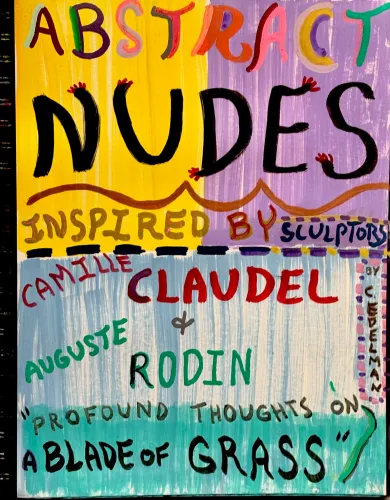 ABSTRACT
NUDES
INSPIRED BY SCULPTORS
CAMILLE
CLAUDEL
&
AUGUSTE
RODIN
"PROFOUND THOUGHTS ON
A BLADE OF GRASS"
BY